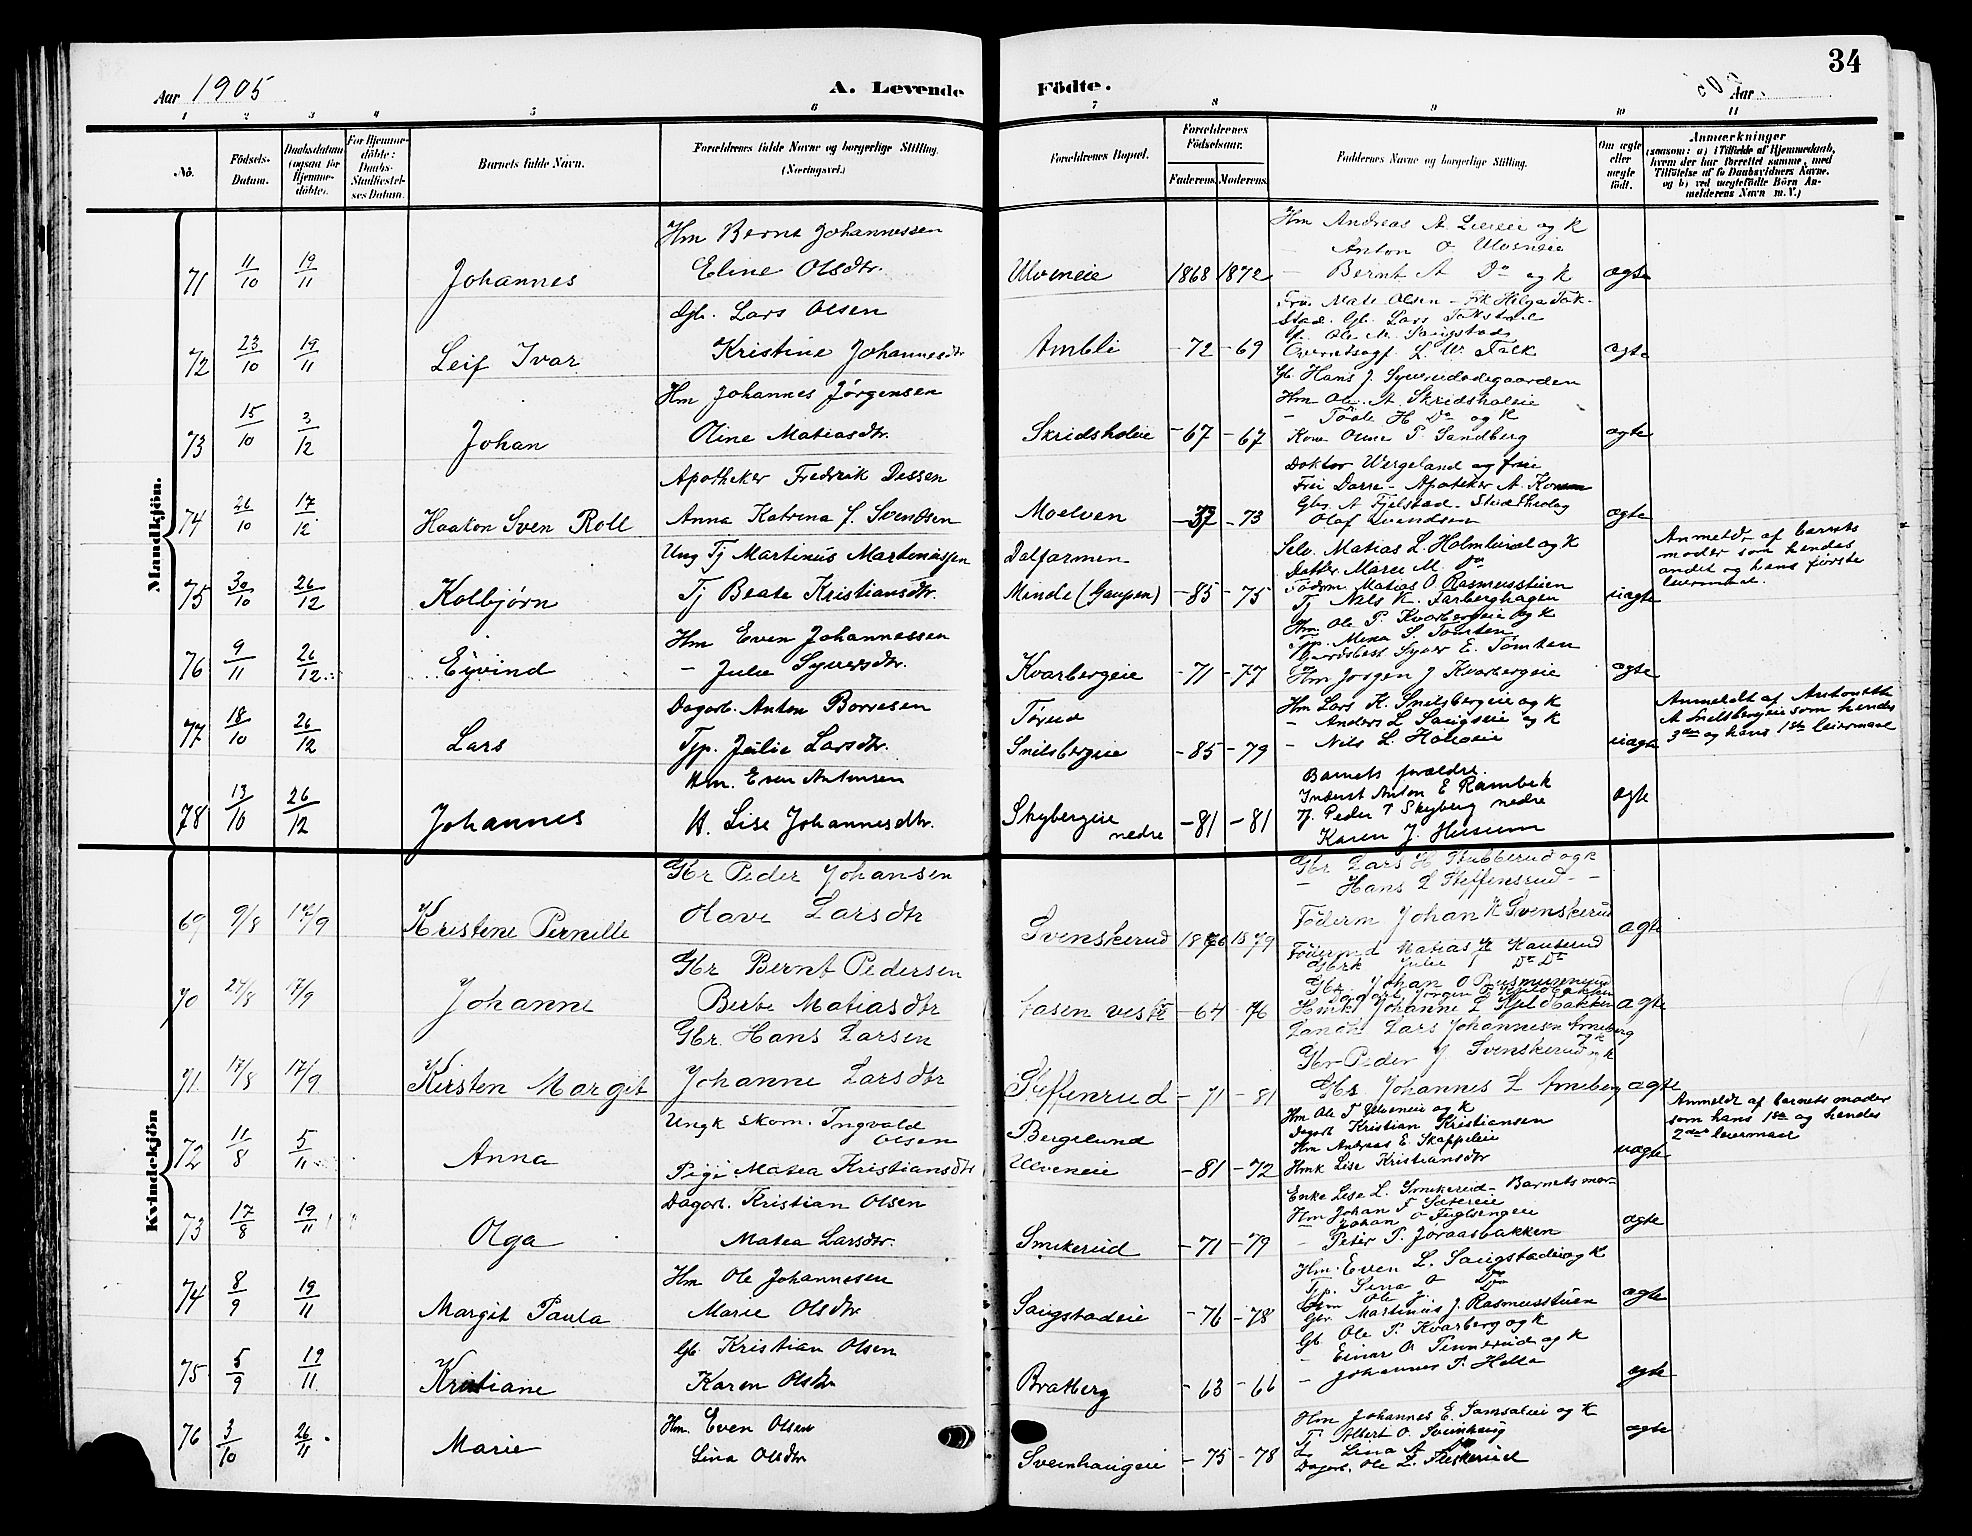 34
Aar 1905
A. Levende
Födte.
Aar
1 2 3 4 5 6 7 8 9 10 11
No.
Födsels-Datum.
Daabsdatum (ogsaa for Hjemmedöbte).
For Hjemmedöbte: Daabs-Stadfæstelses Datum.
Barnets fulde Navn.
Forældrenes fulde Navne og borgerlige Stilling.
(Næringsvei.)
Forældrenes Bopæl.
Forældrenes Födselsaar.
Faderens. Moderens.
Faddernes Navne og borgerlige Stilling.
Om ægte eller uægte födt.
Anmærkninger
(saasom: a) i Tilfælde af Hjemmedaab, hvem der har forrettet samme, med Tilföielse af to Daabsvidners Navne, og b) ved uægtefödte Börn Anmelderens Navn m. V.)
Mandkjön.
71 11/10 19/11 Johannes
Hm Bernt Johannessen
Eline Olsdtr.
Ulveneie 1868 1872
Hm Andreas A. Lieeie og K
– Anton O Ulveneie
– Bernt A Do og K
ægte
72 23/10 19/11 Leif Ivar
Gb. Lars Olsen
Kristine Johannesdtr
Ambli –72 –69
Fru Mate Olsen – Frk Helga Tok-
stad. Gb. Lars Tokstad
Gb. Ole M. Saugstad
Overretssagf. L. W. Falk
ægte
73 15/10 3/12 Johan
Hm Johannes Jørgensen
Oline Matiasdtr.
Skridsholeie –67 –67
Gb. Hans J. Syverudødegaarden
Hm Ole A. Skridsholeie
– Do og K
Kone P. Sandberg
ægte
74 26/10 17/12 Haakon Sven Roll
Apotheker Fredrik Dessen
Anna Katrina f. Svendsen
Moelven –73
Doktor Wergeland og frue
Frøi Darre – Apoteker A.
Gbr. A Fjelstad. Stud Theolog
Olaf Svendsen
ægte
75 30/10 26/12 Kolbjørn
Ung Tj Martinus Martinussen
Tj Beate Kristiansdtr.
Dalfarmen
Minde (Gaupen) –85 –75
Selv. Matias L. Holmlund og K
Datter Marie M. Do
Föderm Matias O. Rasmusstuen
Tj Nels K. Farberghagen
uægte
Anmeldt af barnets
moder som hendes
andet og hans første
leiermaal.
76 9/11 26/12 Eyvind
Hm Even Johannessen
– Julie Syversdtr.
Kvarbergeie –71 –77
Hm. Ole P. Kvarbergeie og K
Tjp. Mina S. Tomten
Gaardsbest Syver E. Tomten
Hm Jørgen J Kvarbergeie
ægte
77 18/10 26/12 Lars
Dagarb. Anton Borresen
Tjp. Julie Larsdtr.
Tørud
Snilsbergeie –85 –79
Hm Lars K. Snilsbergeie og K
– Anders L Saugseie og K
– Nils L.
uægte
Anmeldt af Antonette
A Snelsbergeie som hendes
3die og hans 1ste leiermaal
78 13/10 26/12 Johannes
Hm. Even Antonsen
K. Lise Johannesdtr.
Skybergeie
nedre –81 –81
Barnets forældre.
Inderst Anton E Rambek
Tj. Peder T Skyberg nedre
Karen J.
ægte
Kvindekjön
69 9/8 17/9 Kristene Pernille
Gbr Peder Johansen
Olave Larsdtr
Svenskerud 1879
Gbr Lars H Stubberud og K
– Hans L Steffensrud –
Föderm Johan K Svenskerud
Föderm Matias K Kauserud
Gbrk Julie Do Do
ægte
70 27/8 17/9 Johanne
Gbr Bernt Pedersen
Berte Matiasdtr
aasen vestre –64 –76
Gbr. Johan O Rasmusrud
Dagarb. Jørgen P. Kjeldbakken
Hmk Johanne L Kjeldbakken
Landh Lars Johannesen Arneberg
ægte
71 17/8 17/9 Kirsten Margit
Gbr. Hans Larsen
Johanne Larsdtr
Steffenrud –71 –81
Gbr Peder J Svenskerud og K
Gbr Johannes L Arneberg
ægte
72 11/8 5/11 Anna
Ungk skom. Ingvald
Olsen
Pige Matea Kristiansdtr
Bergelund
Ulveneie –81 –72
Hm Ole T Ulveneie og K
Dagarb Kristian Kristiansen
Hm Andreas E. Skappeleie
Hmk Lise Kristiansdtr
uægte
Anmeldt af barnets moder
som hans 1ste og hendes
2det leiermaal
73 17/8 19/11 Olga
Dagarb. Kristian Olsen
Matea Larsdtr.
Smikerud –71 –79
Enke Lise L. Smikerud – Barnets mor –
Hm Johan F Sætereie
– Johan O Fuglsengeie
– Peter P. Joraasbakken
ægte
74 8/9 19/11 Margit Paula
Hm Ole Johannesen
Marie Olsdtr
Saugstadeie –76 –78
Hm. Even L. Saugstadeie og K
Tjp. Sina O Do
Hm Ole J.
Gbr. Martinus J. Rasmusstuen
ægte
75 5/9 19/11 Kristiane
Gb. Kristian Olsen
Karen Olsdtr
Bratberg –63 –66
Gb. Ole P. Kvarberg og K
– Einar O Finnerud og K
– Johannes P. Holte
ægte
76 3/10 26/11 Marie
Hm. Even Olsen
Lina Olsdtr
Sveinhaugeie –75 –78
Hm Johannes E. Samsaleie og K
Tj Albert O. Sveinhaug
Lina A
Dagarb. Ole L. Fleskerud
ægte